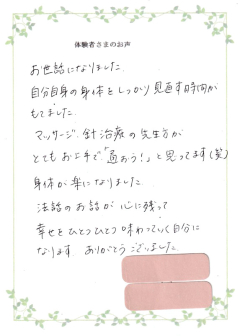 体験者さまのお声
お世話になりました
自分自身の身体をしっかり見直す時間が
もてました
マッサージ、針治療の先生方が
とてもお上手で「通おう!」と思ってます(笑)
身体が楽になりました
法話のお話が心に残って
幸せをひとつひとつ味わっていく自分に
なります ありがとうございました